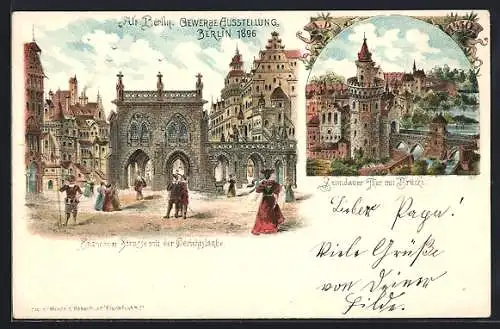 Alt Berlin. GEWERBE AUSSTELLUNG,
BERLIN 1896
Spandauer Thor mit Brücke.
Strasse mit der Gerichtslaube.
Lieber Papa!
Viele Grüße
von Deiner
Hilde.